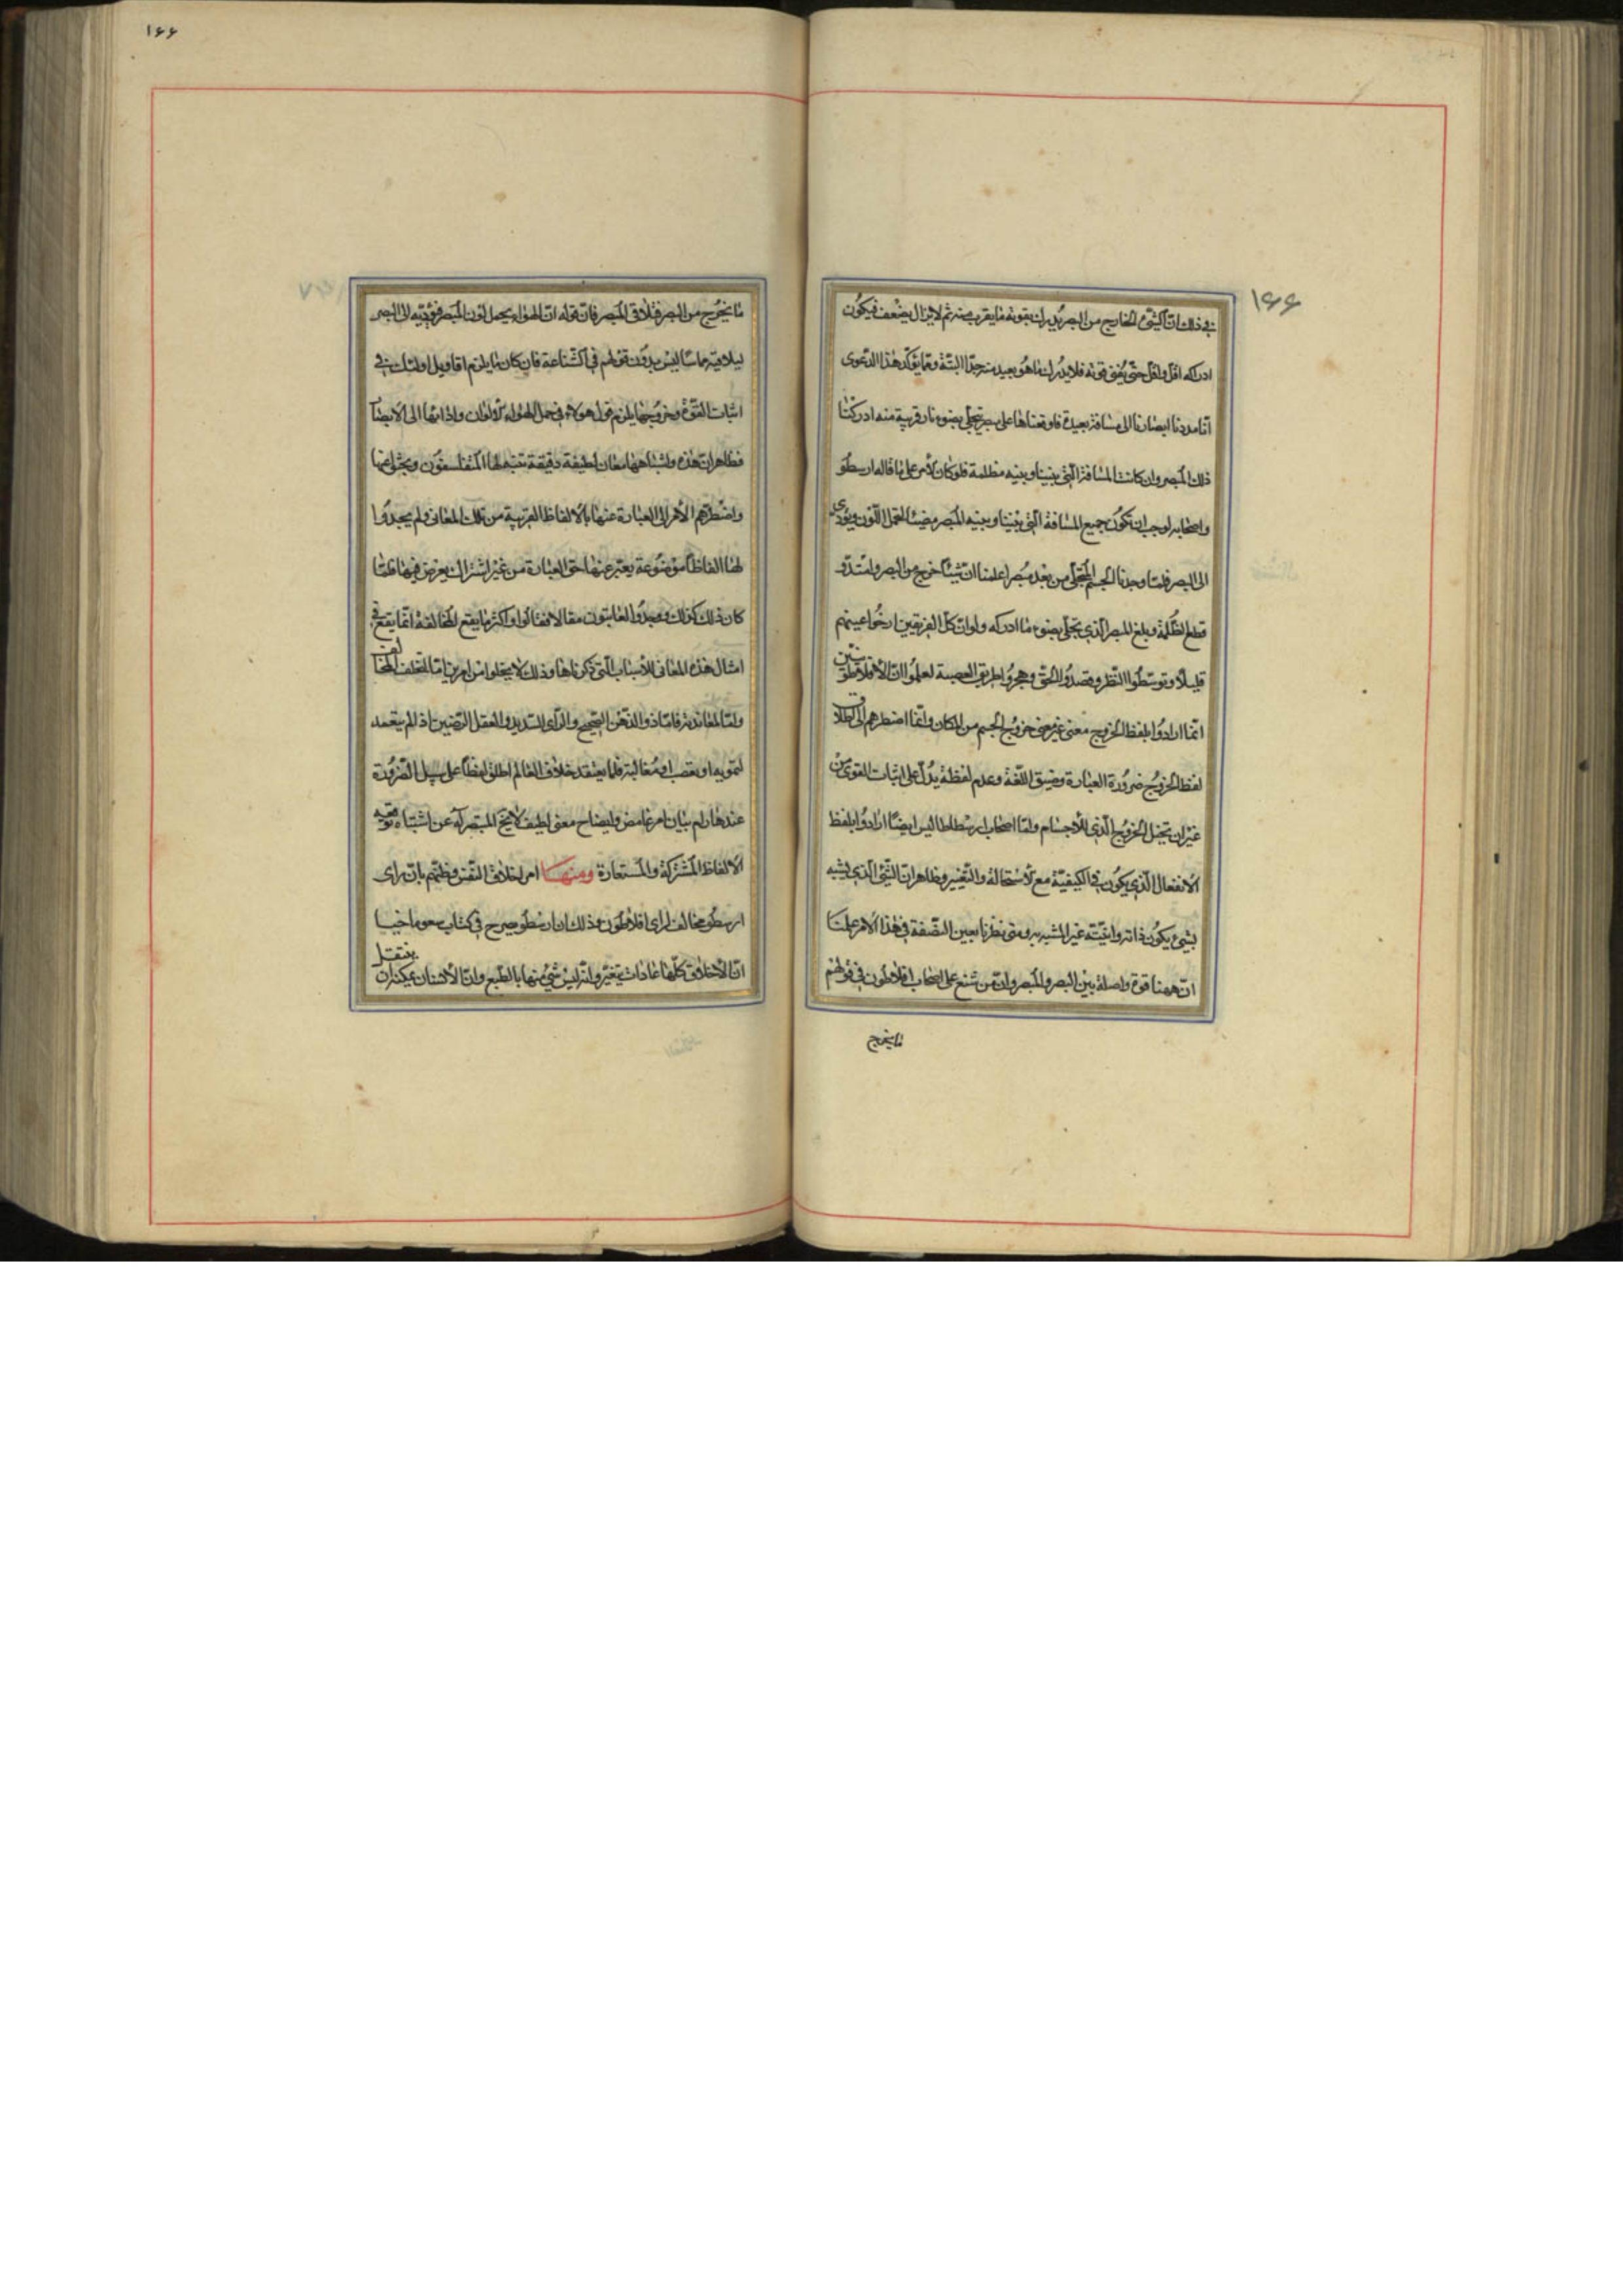 ۱۶۶
فى ذلك ان الشىء الخارج من البصر يدرك بقوته ما يقرب منه ثم لا يزال يضعف فيكون
ادراكه اقل واقل حتى يفنى قوته فلا يدرك ما هو بعيد منه جدا البتة ومما يؤكد هذا الدعوى
انا مددنا ابصارنا الى مسافة بعيدة فاوقعناها على مبصر يتجلى بضوء نار قريبة منه ادركنا
ذلك المبصر وان كانت المسافة التى بيننا وبينه مظلمة فلو كان الامر على ما قاله ارسطو
واصحابه لوجب ان تكون جميع المسافة التى بيننا وبينه المبصر مضيئا لتحمل اللون ويؤدى
الى البصر فلما وجدنا الجسم المتجلى من بعد مبصرا علمنا ان شيئا خرج من البصر وامتد و
قطع الظلمة وبلغ المبصر الذى تجلى بضوء ما ادركه ولو ان كل الفريقين ارخوا عينهم
قليلا وتوسطوا النظر وقصدوا الحق وهجروا طريق العصبية لعلموا ان الافلاطونيين
انما ارادوا بلفظ الخروج معنى غير معنى خروج الجسم من المكان وانما اضطرهم الى اطلاق
لفظ الخروج ضرورة العبارة وضيق اللغة وعدم لفظة يدل على اثبات القوى من
غير ان تخيل الخروج الذى للاجسام واما اصحاب ارسطاطاليس ايضا ارادوا بلفظ
الانفعال الذى يكون فى الكيفية مع الاستحالة والتغيير وظاهر ان الشىء الذى يشبه
بشىء يكون ذاته وانيته غير المشبه به ومتى نظرنا بعين النصفة فى هذا الامر علمنا
ان ههنا قوة واصلة بين البصر والمبصر وان من شنع على اصحاب افلاطون فى قولهم
ما يخرج
۱۶۶
ما يخرج من البصر فتلاقى المبصر فان قوله ان الهواء يحمل لون المبصر فيؤديه الى البصر
ليلاقيه مماسا ليس بدون قولهم فى الشناعة فان كان ما يلزم اقاويل اولئك فى
اثبات القوة وخروجها يلزم قول هولاء فى حمل الهواء الالوان وادائها الى الابصار
فظاهر ان هذه واشباهها معان لطيفة دقيقة تنبه لها المتفلسفون وبحثوا عنها
واضطرهم الامر الى العبارة عنها بالالفاظ القريبة من تلك المعانى ولم يجدوا
لها الفاظا موضوعة يعبر عنها حق العبارة من غير اشتراك يعرض فيها فلما
كان ذلك كذلك وجدوا العائبون مقالا فقالوا واكثر ما يقع المخالفة انما يقع فى
امثال هذه المعانى للاسباب التى ذكرناها وذلك لا يخلوا من امرين اما لتخلف المخالف
واما لمعاندته فاما ذو الذهن الصحيح والراى السديد والعقل الرصين اذ لم يتعمد
لتمويه او تعصب او مغالبة فلما يعتقد خلاف العالم اطلق لفظا على سبيل الضرورة
عند ما رام بيان امر غامض وايضاح معنى لطيف لا يخ المتبصر له عن اشتباه توقعه
الالفاظ المشتركة والمستعارة ومنها امر اخلاق النفس وظنهم بان راى
ارسطو مخالف لراى افلاطون وذلك ان ارسطو صرح فى كتاب نيقوماخيا
ان الاخلاق كلها عادات يتغير وانه ليس شىء منها بالطبع وان الانسان يمكنه ان ينتقل